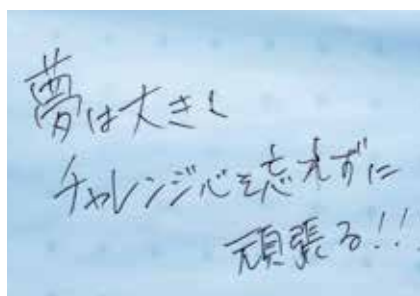 夢は大きく
チャレンジ心を忘れずに
頑張る!!